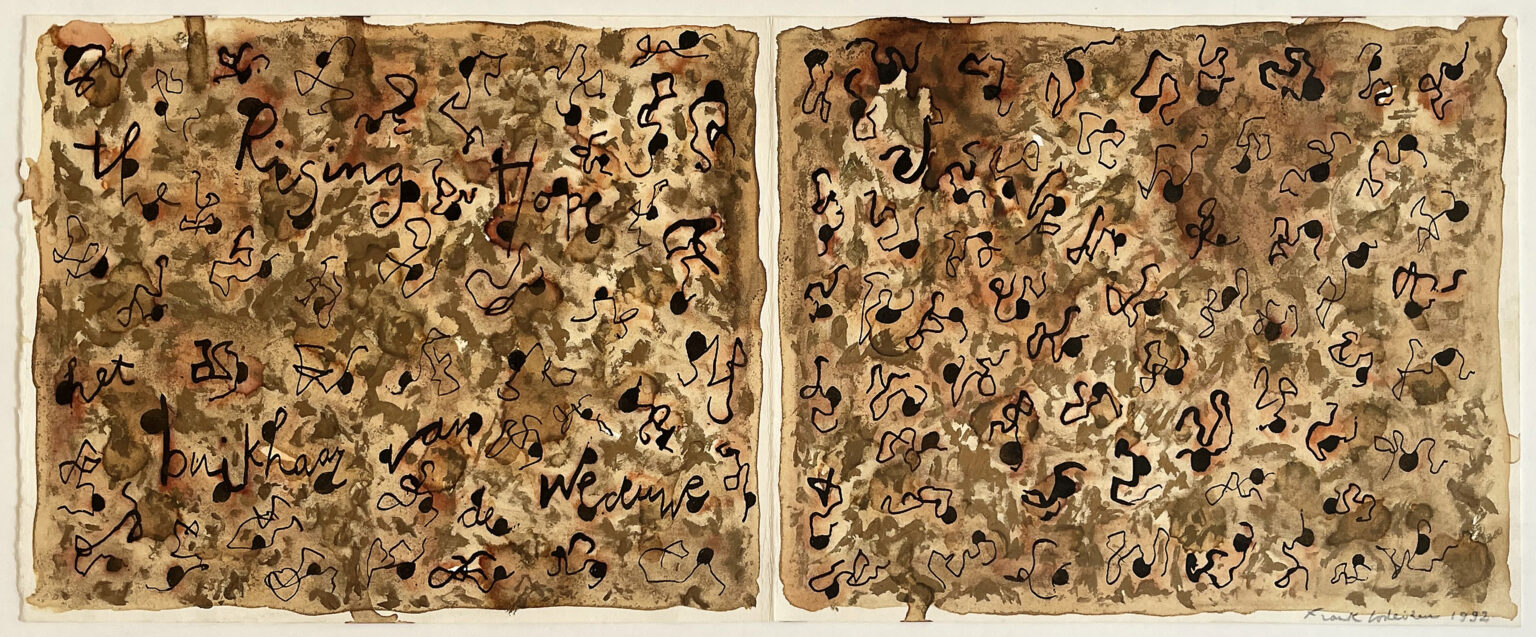 the Rising Hope
het buikhaar van
de Weduwe
Frank Lodeizen 1992